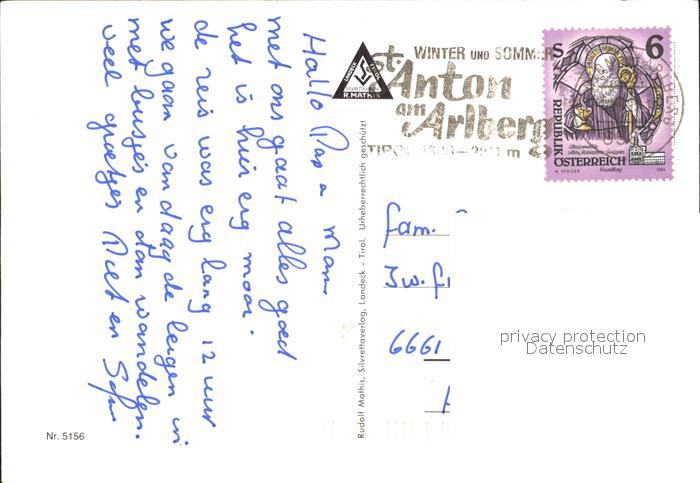 Hallo Pap en Mam
met ons gaat alles goed
het is hier erg mooi.
de reis was erg lang 12 uur
we gaan vandaag de bergen in
met busjes en dan wandelen.
veel groetjes Piet en
Nr. 5156
Rudolf Mathis, Silvrettaverlag, Landeck - Tirol. Urheberrechtlich geschützt!
LANDECK TIROL
SILVRETTAVERLAG
R. MATHIS
WINTER UND SOMMER
St. Anton
am
Arlberg
TIROL m
S 6
REPUBLIK
ÖSTERREICH
fam.
Jw. fr
6661
privacy protection
Datenschutz